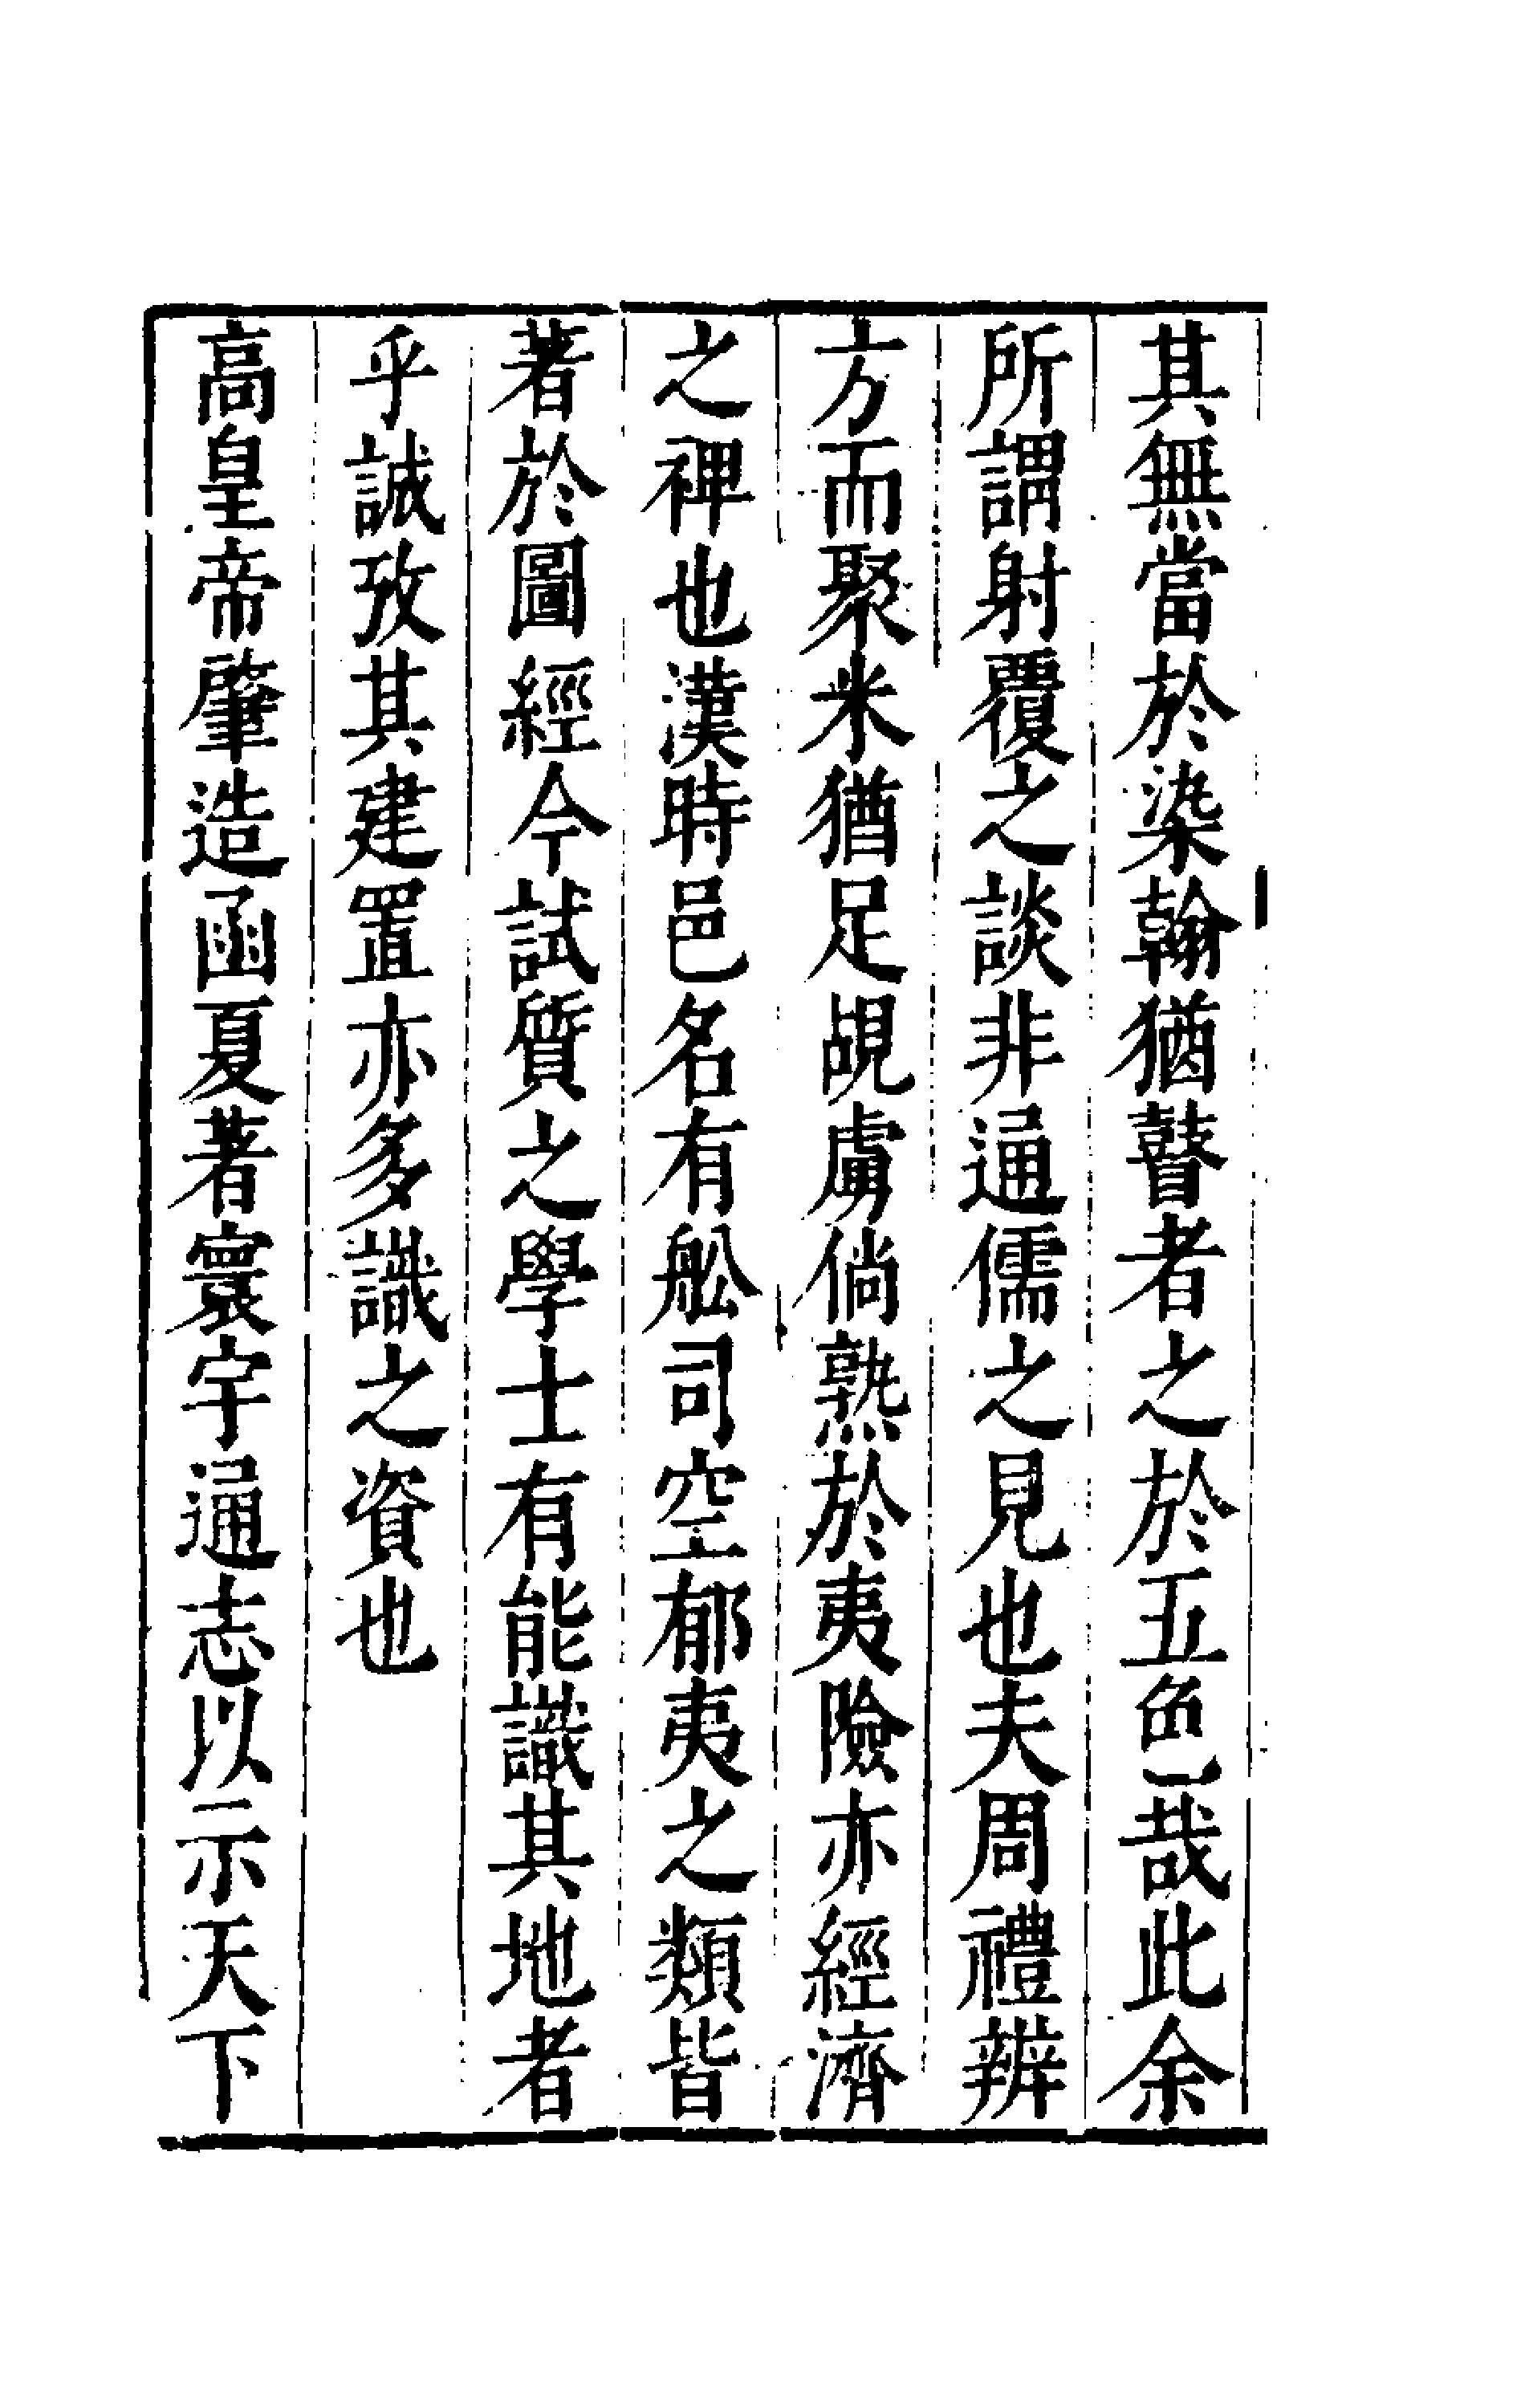 其無當於染翰猶瞽者之於五色哉此余
所謂射覆之談非通儒之見也夫周禮辨
方而聚米猶足覘虜倘熟於夷險亦經濟
之裨也漢時邑名有舩司空郁夷之類皆
著於圖經今試質之學士有能識其地者
乎誠攷其建置亦多識之資也
高皇帝肇造函夏著寰宇通志以示天下